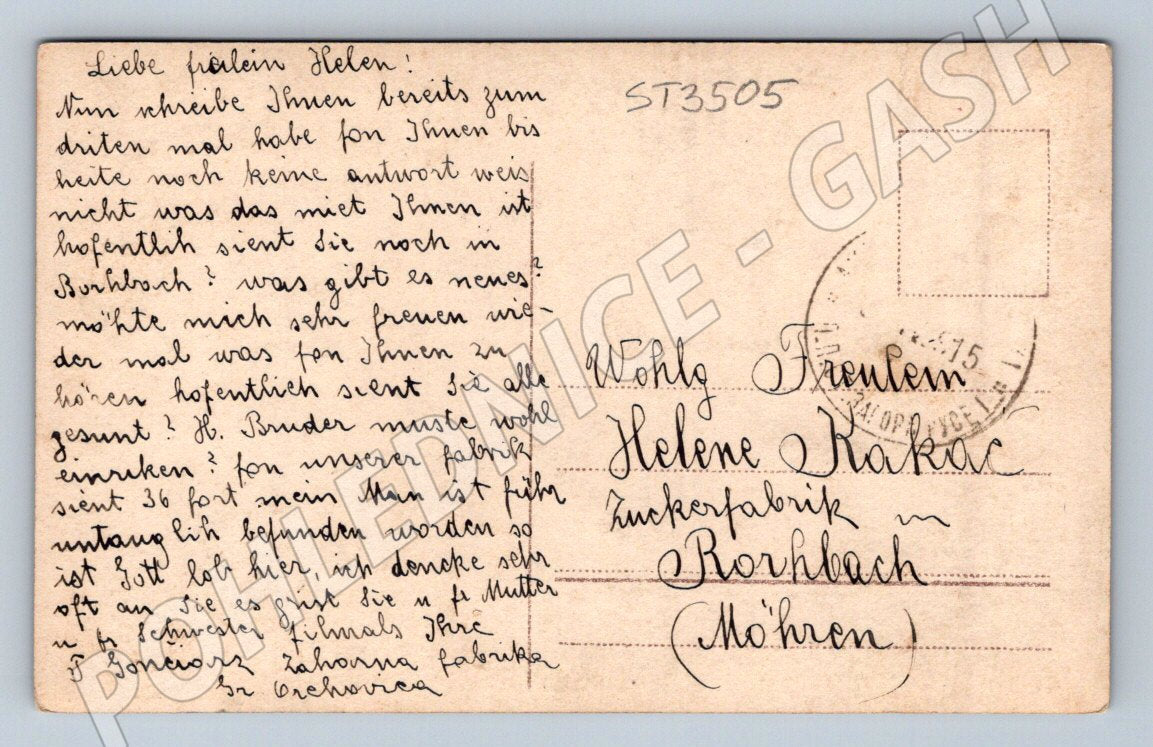 Liebe frälein Helen!
Nun schreibe Ihnen bereits zum
driten mal habe fon Ihnen bis
heite noch keine antwort weis
nicht was das miet Ihnen ist
hofentlih sient Sie noch in
Borhbach? was gibt es neues?
möhte mich sehr freuen wie-
der mal was fon Ihnen zu
hören hofentlich sient Sie alle
gesunt? H. Bruder muste wohl
einriken? fon unserer fabrik
sient 36 fort mein Man ist führ
untauglih befunden worden so
ist Gott lob hier, ich dencke sehr
oft an Sie es grist Sie u fr Mutter
u fr Schwester filmals Ihre
F Gončiorz Zahorna fabrika
Gr Orehovica
ST3505
15
Wohlg Freulein
Helene Kakač
Zuckerfabrik in
Rorhbach
(Möhren)
POHLEDNICE - GASH